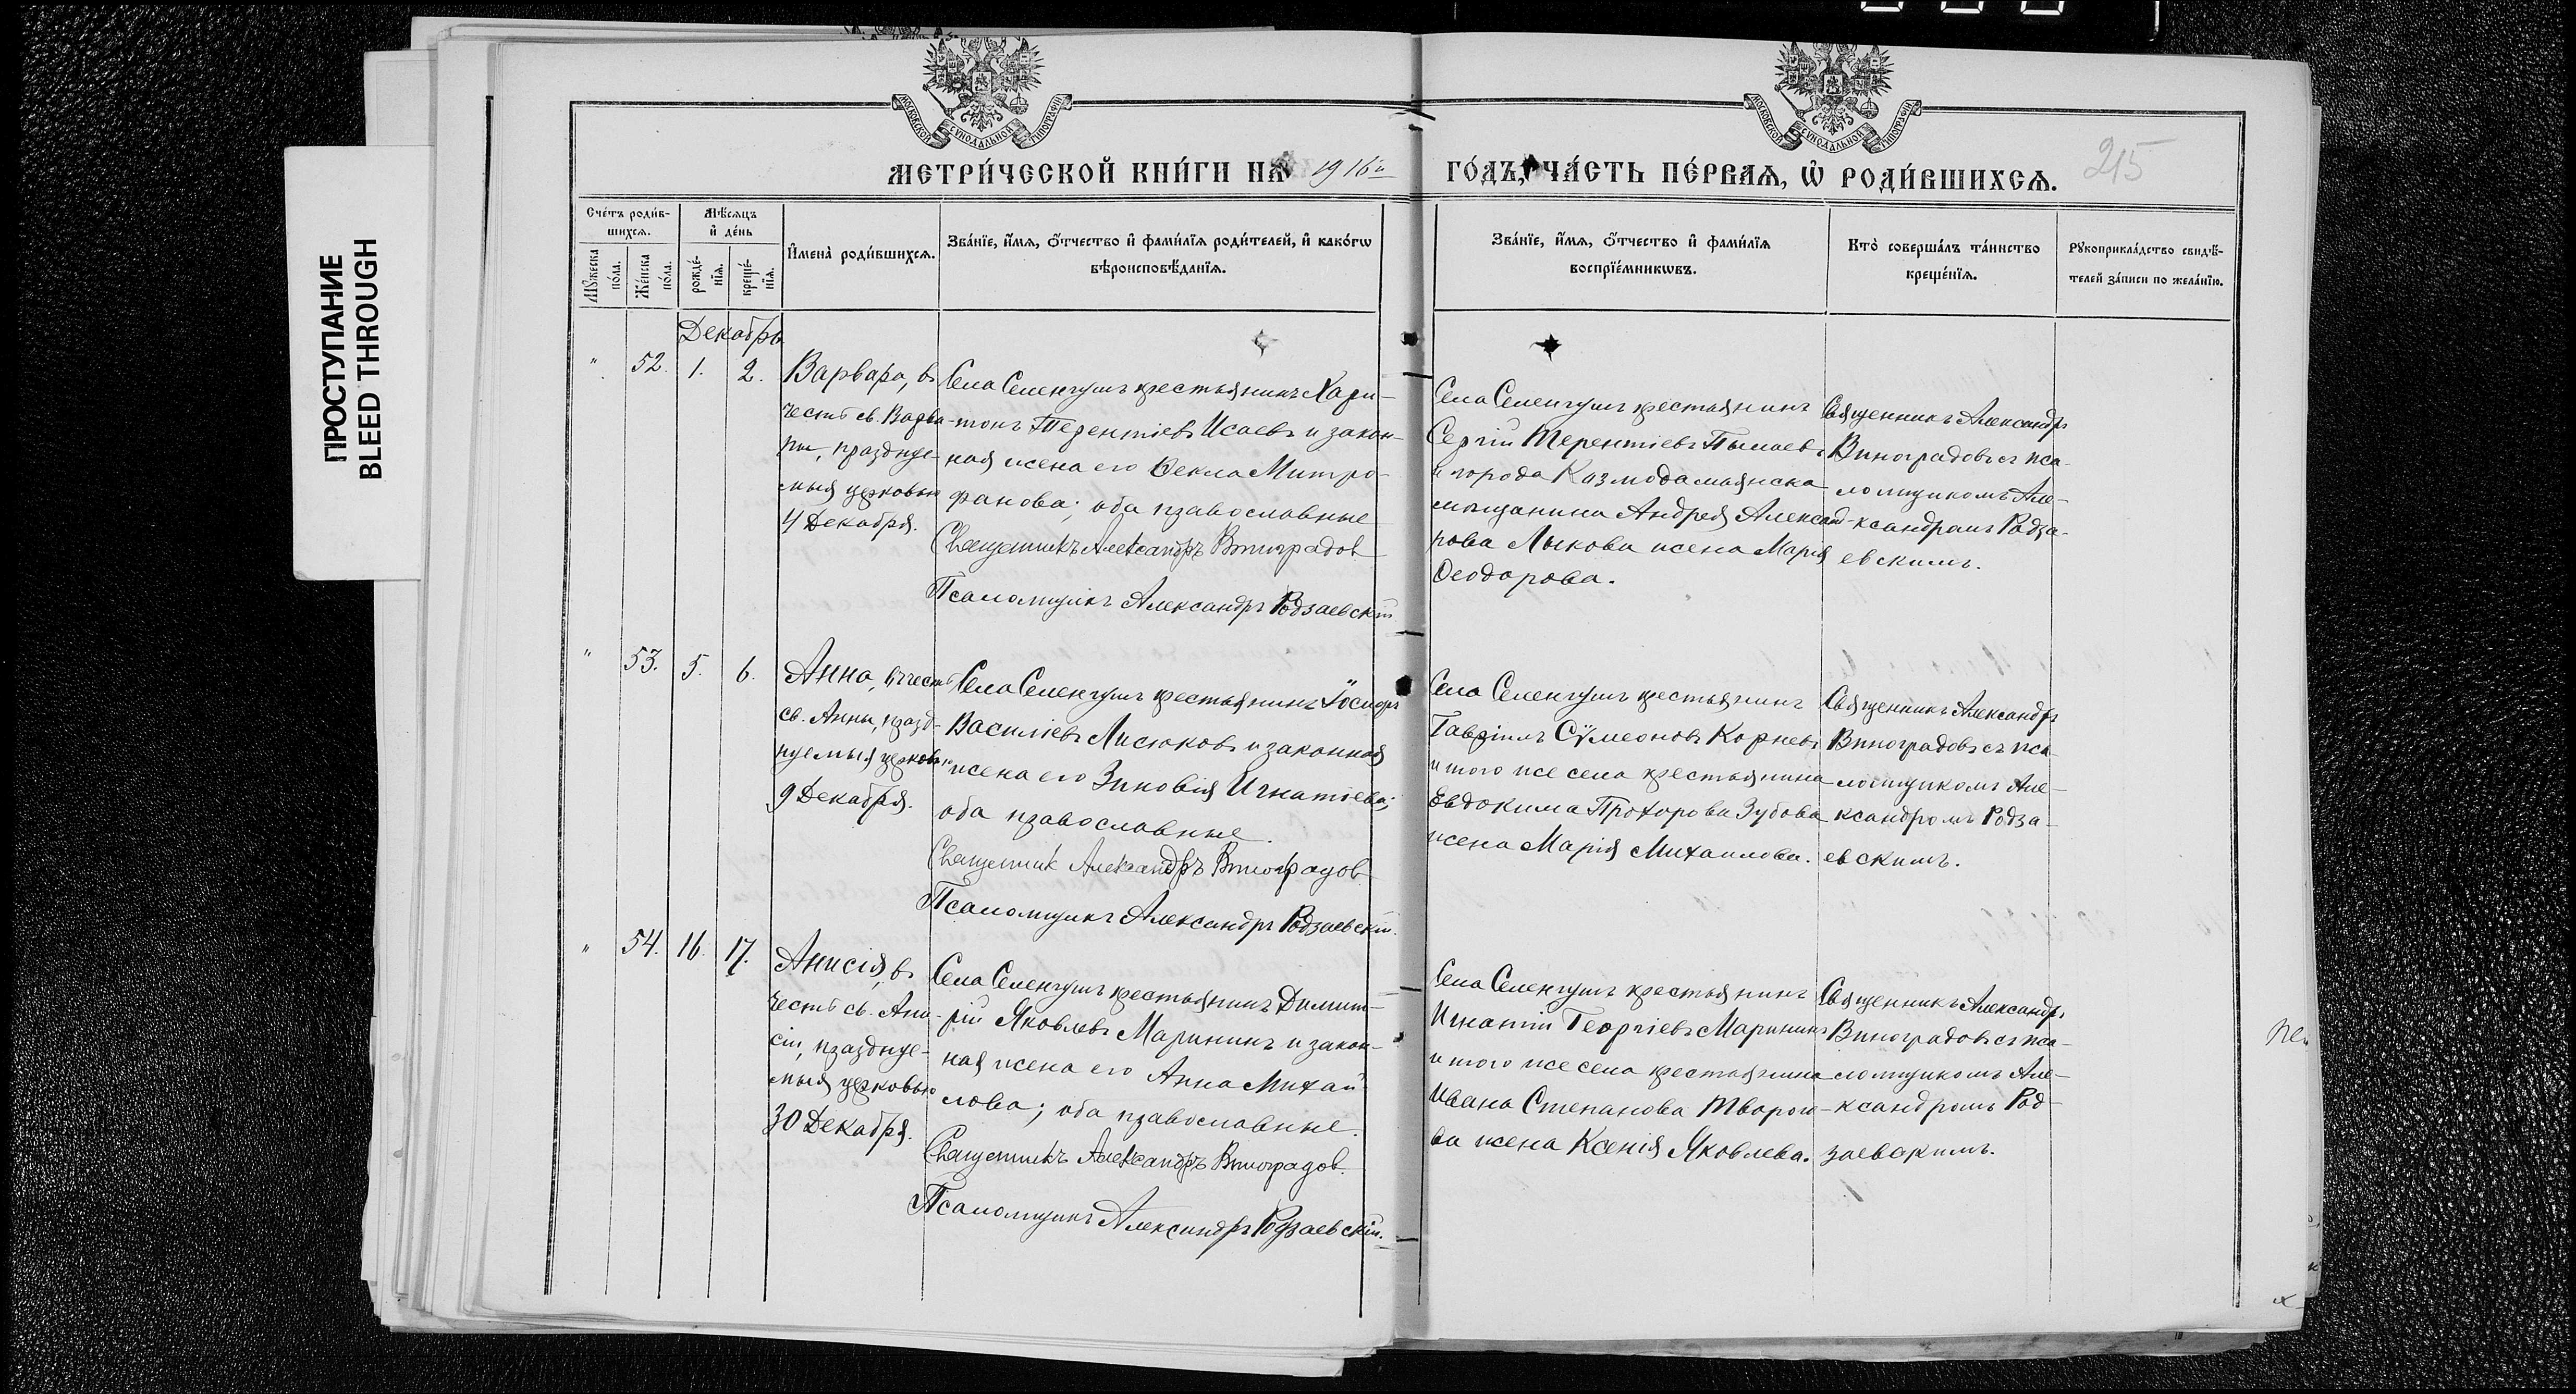 ПРОСТУПАНИЕ
BLEED THROUGH
МОСКОВСКОЙ СѴНОДАЛЬНОЙ ТИПОГРАФІИ
МОСКОВСКОЙ СѴНОДАЛЬНОЙ ТИПОГРАФІИ
МЕТРИ́ЧЕСКОЙ КНИ́ГИ НА 1916й ГО́ДЪ, ЧА́СТЬ ПЕ́РВАѦ, Ѡ҆ РОДИ́ВШИХСѦ.
215
Сче́тъ роди́в-
шихсѧ.
Мꙋ́жеска по́ла.
Же́нска по́ла.
Мѣ́сѧцъ
и҆ де́нь
рожде́-
нїѧ.
креще́-
нїѧ.
И҆мена̀ роди́вшихсѧ.
Зва́нїе, и҆́мѧ, ѻ҆́тчество и҆ фами́лїѧ роди́телей, и҆ како́гѡ
вѣроисповѣ́данїѧ.
Зва́нїе, и҆́мѧ, ѻ҆́тчество и҆ фами́лїѧ
воспрїе́мникѡвъ.
Кто̀ соверша́лъ та́инство
креще́нїѧ.
Рꙋкоприкла́дство свидѣ́-
телей за́писи по жела́нїю.
Декабрь
" 52. 1. 2.
Варвара, въ
честь св. Варва-
ры, праздуе-
мыя церковью
4 Декабря.
Села Селенгушъ крестьянинъ Хари-
тонъ Терентіевъ Исаевъ и закон-
ная жена его Ѳекла Митро-
фанова; оба православные
Священникъ Александръ Виноградов
Псаломщикъ Александръ Родзаевскій
Села Селенгушъ крестьянинъ
Сергій Терентіевъ Пылаевъ
и города Казмодамьянска
мѣщанина Андрея Александ-
рова Лыкова жена Марія
Ѳеодорова.
Священникъ Александръ
Виноградовъ съ пса-
ломщикомъ Але-
ксандромъ Родза-
евскимъ.
" 53. 5. 6.
Анна, въ честь
св. Анны, празд-
нуемыя церковью
9 Декабря.
Села Селенгушъ крестьянинъ Іосифъ
Василіевъ Лисюковъ и законная
жена его Зиновія Игнатіева;
оба православные.
Священник Александръ Виноградов
Псаломщикъ Александръ Родзаевскій.
Села Селенгушъ крестьянинъ
Гавріилъ Сѵмеоновъ Корневъ
и того же села крестьянина
Евдокима Прохорова Зубова
жена Марія Михаилова.
Священникъ Александръ
Виноградовъ съ пса
ломщикомъ Але-
ксандромъ Родза-
евскимъ.
" 54. 16. 17.
Анисія, въ
честь св. Ани-
сіи, праздуе-
мыя церковью
30 Декабря.
Села Селенгушъ крестьянинъ Димит-
рій Яковлевъ Маринин и закон-
ная жена его Анна Михаи-
лова; оба православные.
Священникъ Александръ Виноградов.
Псаломщикъ Александръ Родзаевскій.
Села Селенгушъ крестьянинъ
Игнатій Георгіевъ Марининъ
и того же села крестьянина
Ивана Степанова Творого-
ва жена Ксенія Яковлева.
Священникъ Александръ
Виноградовъ съ пса-
ломщикомъ Але-
ксандромъ Род-
заевскимъ.